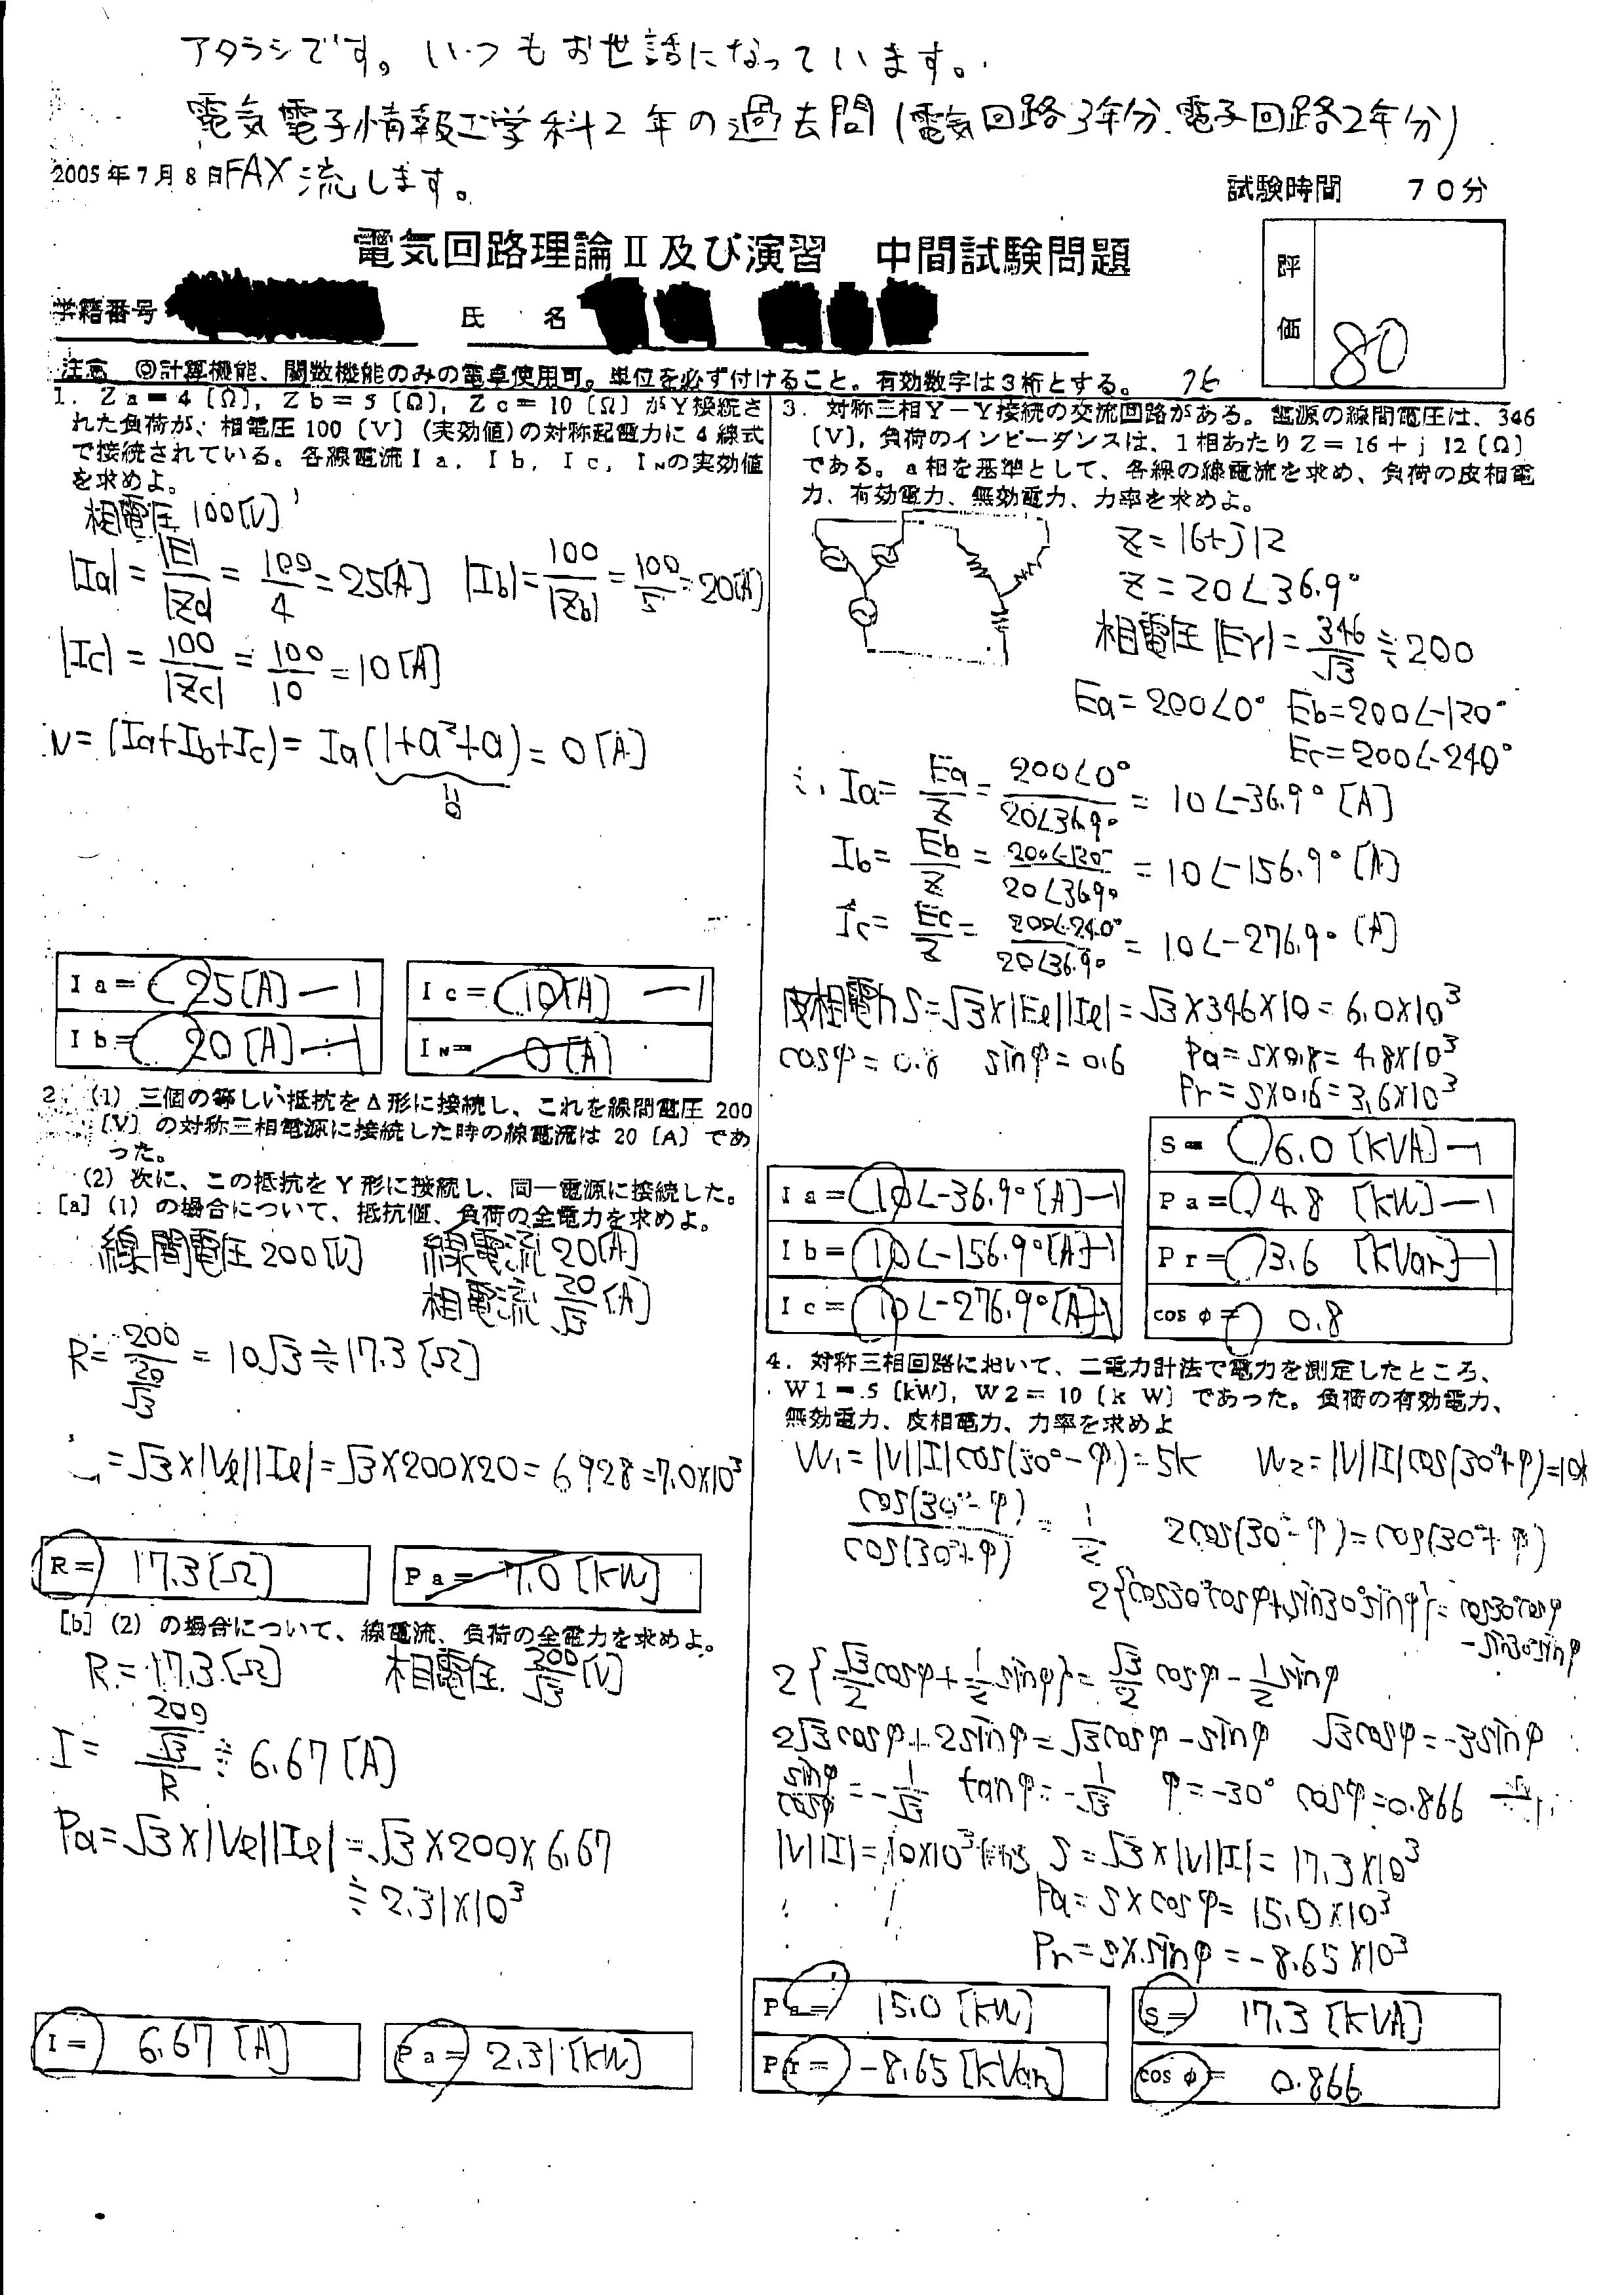 アタラシです。いつもお世話になっています。
電気電子情報工学科2年の過去問(電気回路3年分.電子回路2年分)
2005年7月8日FAX流します。
試験時間 70分
電気回路理論Ⅱ及び演習 中間試験問題
評価 80
学籍番号 氏 名
注意 ◎計算機能、関数機能のみの電卓使用可。単位を必ず付けること。有効数字は3桁とする。 76
1. Za=4〔Ω〕, Zb=5〔Ω〕, Zc=10〔Ω〕がY接続さ
れた負荷が、相電圧100〔V〕(実効値)の対称起電力に4線式
で接続されている。各線電流Ia, Ib, Ic, INの実効値
を求めよ。
相電圧 100[V]
|Ia| = |E|/|Za| = 100/4 = 25[A] |Ib| = 100/|Zb| = 100/5 = 20[A]
|Ic| = 100/|Zc| = 100/10 = 10[A]
N = (Ia+Ib+Ic) = Ia(1+a²+a) = 0[A]
0
Ia= 25[A] -1 Ic= 10[A] -1
Ib= 20[A] -1 IN= 0[A]
2. (1) 三個の等しい抵抗をΔ形に接続し、これを線間電圧200
〔V〕の対称三相電源に接続した時の線電流は20〔A〕であ
った。
(2) 次に、この抵抗をY形に接続し、同一電源に接続した。
[a] (1) の場合について、抵抗値、負荷の全電力を求めよ。
線間電圧 200[V] 線電流 20[A]
相電流 20/√3 [A]
R = 200/(20/√3) = 10√3 ≒ 17.3[Ω]
= √3×|Vl||Il| = √3×200×20 = 6928 = 7.0×10³
R= 17.3[Ω] Pa= 7.0[kW]
[b] (2) の場合について、線電流、負荷の全電力を求めよ。
R = 17.3[Ω] 相電圧 200/√3 [V]
I = (200/√3)/R ≒ 6.67[A]
Pa = √3×|Vl||Il| = √3×200×6.67
≒ 2.31×10³
I= 6.67[A] Pa= 2.31[kW]
3. 対称三相Y-Y接続の交流回路がある。電源の線間電圧は、346
〔V〕, 負荷のインピーダンスは、1相あたりZ=16+j12〔Ω〕
である。a相を基準として、各線の線電流を求め、負荷の皮相電
力、有効電力、無効電力、力率を求めよ。
Z = 16+j12
Z = 20∠36.9°
相電圧 |EY| = 346/√3 ≒ 200
Ea = 200∠0° Eb = 200∠-120°
Ec = 200∠-240°
∴ Ia = Ea/Z = 200∠0°/20∠36.9° = 10∠-36.9°[A]
Ib = Eb/Z = 200∠-120°/20∠36.9° = 10∠-156.9°[A]
Ic = Ec/Z = 200∠-240°/20∠36.9° = 10∠-276.9°[A]
皮相電力 S = √3×|El||Il| = √3×346×10 = 6.0×10³
cosφ = 0.8 sinφ = 0.6 Pa = S×0.8 = 4.8×10³
Pr = S×0.6 = 3.6×10³
S= 6.0[KVA] -1
Ia= 10∠-36.9°[A] -1 Pa= 4.8[kW] -1
Ib= 10∠-156.9°[A] -1 Pr= 3.6[KVar] -1
Ic= 10∠-276.9°[A] -1 cosφ= 0.8
4. 対称三相回路において、二電力計法で電力を測定したところ、
W1=5〔kW〕, W2=10〔kW〕であった。負荷の有効電力、
無効電力、皮相電力、力率を求めよ
W₁ = |V||I|cos(30°-φ) = 5k W₂ = |V||I|cos(30°+φ) = 10k
cos(30°-φ)/cos(30°+φ) = 1/2 2cos(30°-φ) = cos(30°+φ)
2{cos30°cosφ+sin30°sinφ} = cos30°cosφ
-sin30°sinφ
2{√3/2 cosφ + 1/2 sinφ} = √3/2 cosφ - 1/2 sinφ
2√3cosφ+2sinφ = √3cosφ-sinφ √3cosφ = -3sinφ
sinφ/cosφ = -1/√3 tanφ = -1/√3 φ = -30° cosφ = 0.866
|V||I| = 10×10³ S = √3×|V||I| = 17.3×10³
Pa = S×cosφ = 15.0×10³
Pr = S×sinφ = -8.65×10³
Pa= 15.0[kW] S= 17.3[KVA]
Pr= -8.65[KVar] cosφ= 0.866